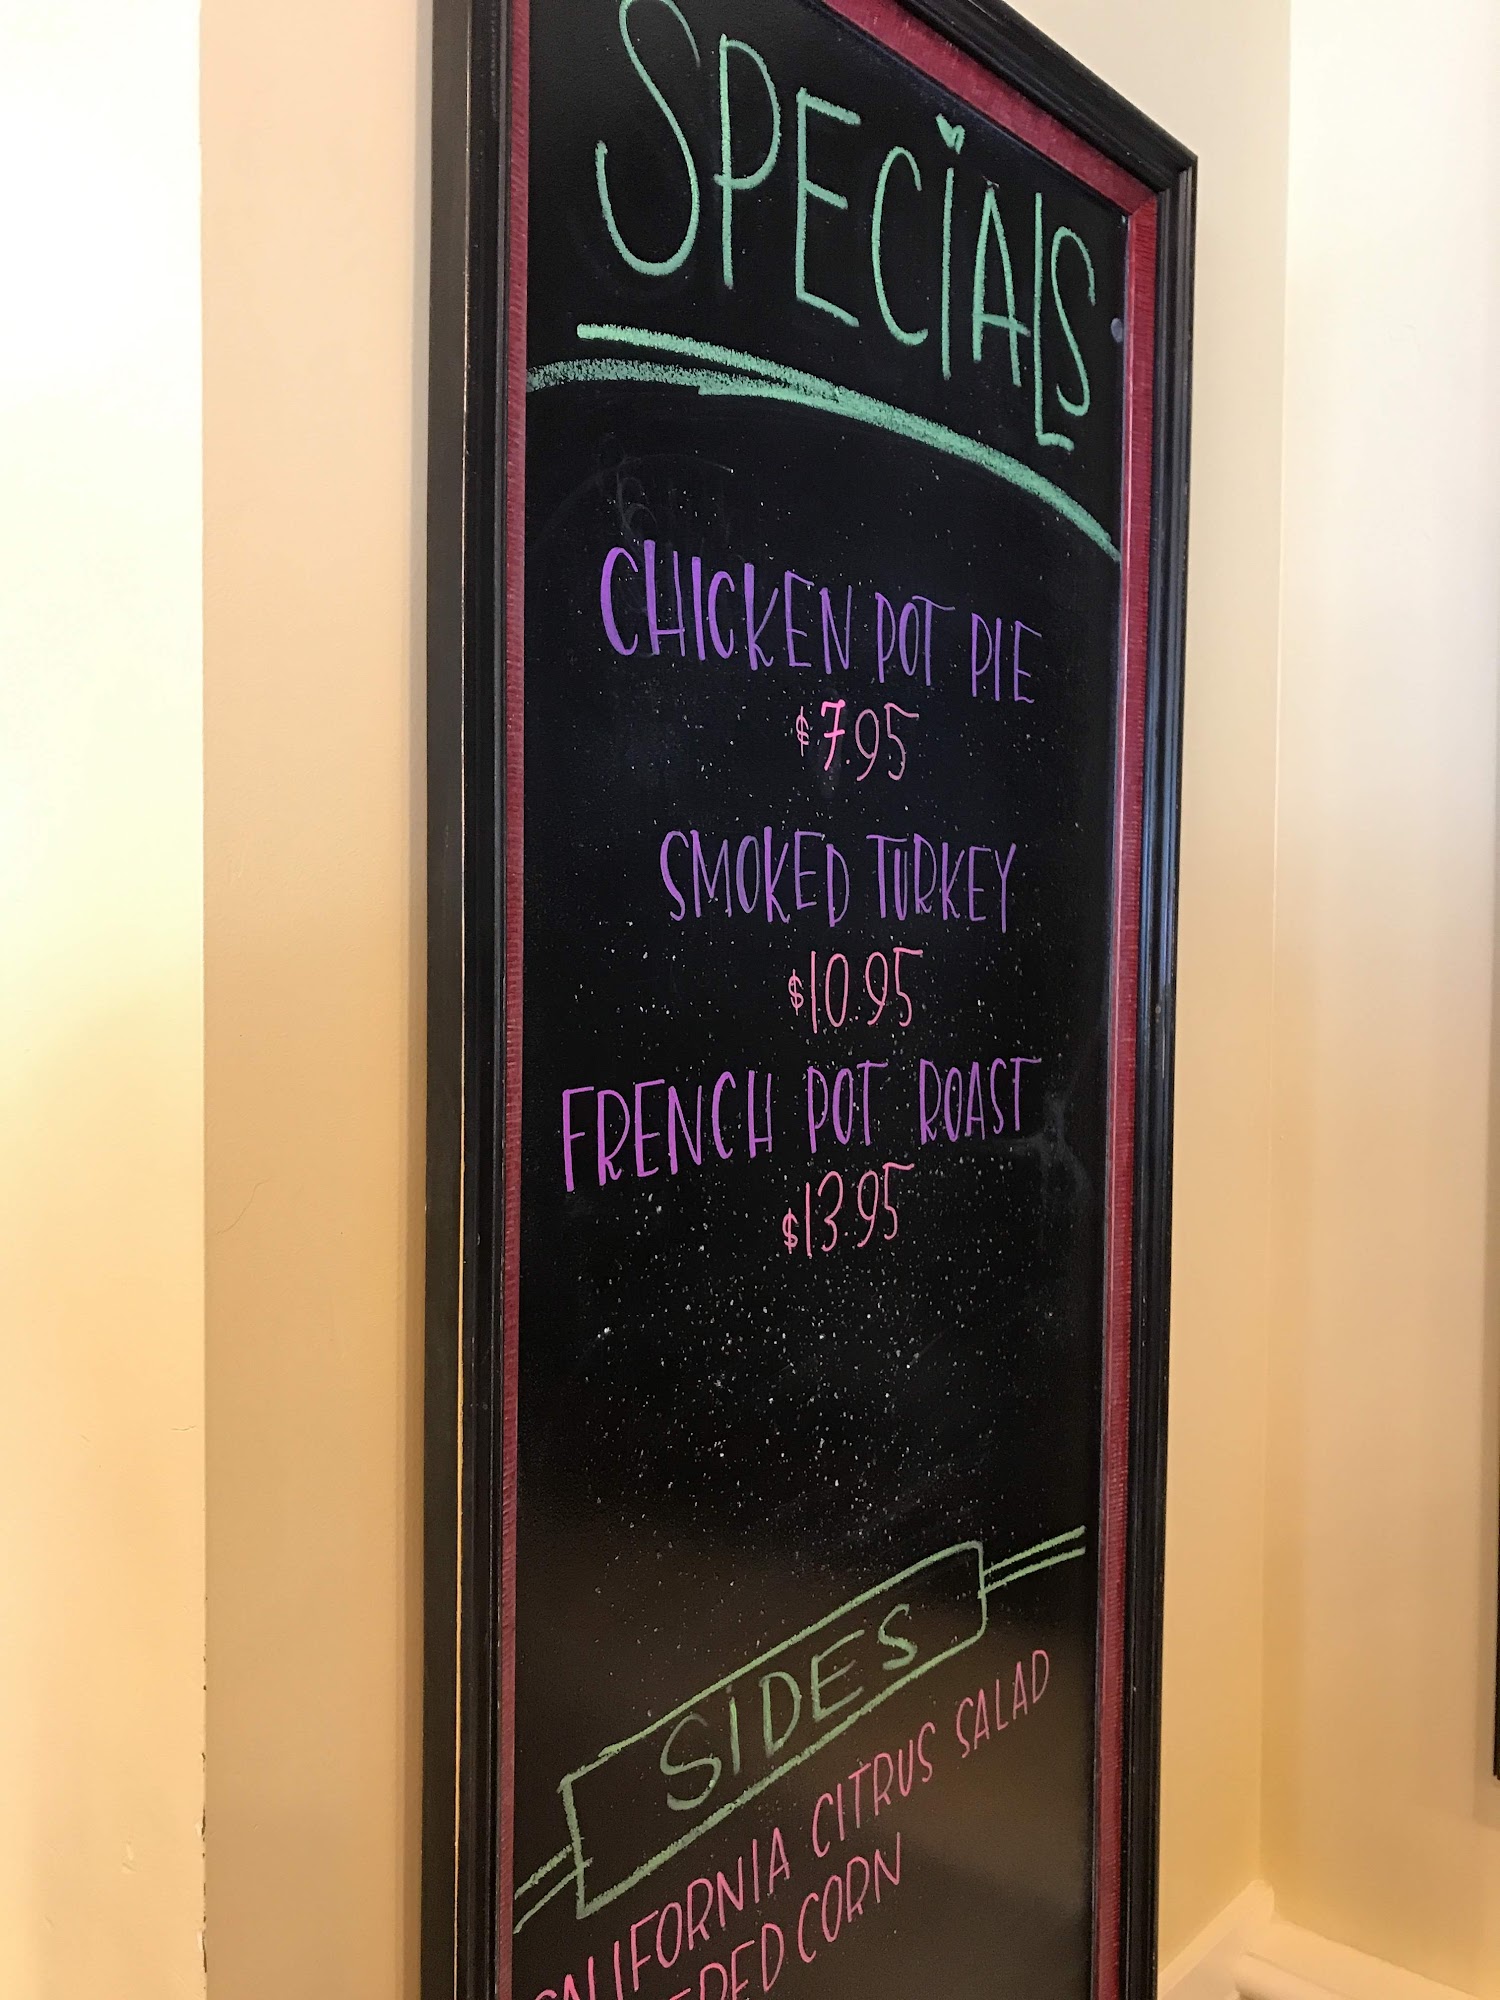 SPECIALS
CHICKEN POT PIE
$7.95
SMOKED TURKEY
$10.95
FRENCH POT ROAST
$13.95
SIDES
CALIFORNIA CITRUS SALAD
CORN